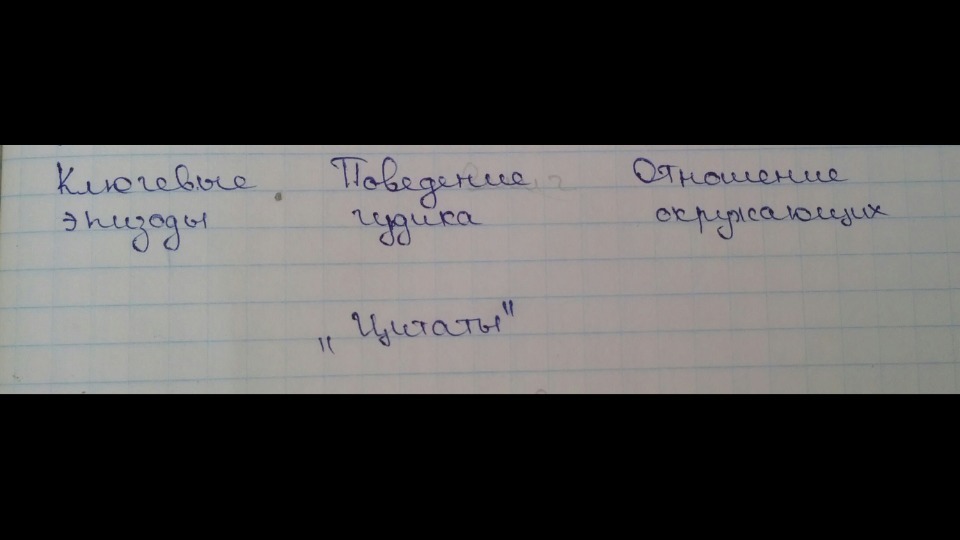 Ключевые Поведение Отношение
эпизоды чудика окружающих
„Цитаты"